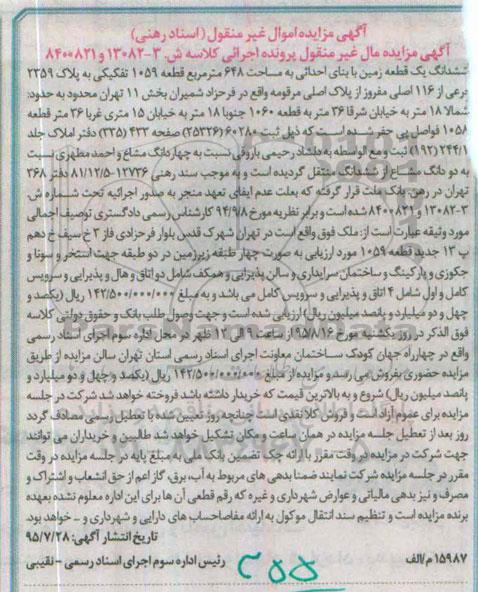 آگهی مزایده اموال غیر منقول (اسناد رهنی)
آگهی مزایده مال غیر منقول پرونده اجرائی کلاسه ش. ۳-۱۳۰۸۲ و ۸۴۰۰۸۲۱
ششدانگ یک قطعه زمین با بنای احداثی به مساحت ۶۴۸ مترمربع قطعه ۱۰۵۹ تفکیکی به پلاک ۲۳۵۹
فرعی از ۱۱۶ اصلی مفروز از پلاک اصلی مرقومه واقع در فرحزاد شمیران بخش ۱۱ تهران محدود به حدود:
شمالا ۱۸ متر به خیابان شرقا ۳۶ متر به قطعه ۱۰۶۰ جنوبا ۱۸ متر به خیابان ۱۵ متری غربا ۳۶ متر قطعه
۱۰۵۸ فواصل پی حفر شده است که ذیل ثبت ۶۰۲۸۰ (۲۵۳۲۶) صفحه ۴۳۳ (۳۳۵) دفتر املاک جلد
۲۴۴/۱ (۱۹۲) ثبت و مع الواسطه به دلشاد رحیمی باروقی نسبت به چهار دانگ مشاع و احمد مطهری نسبت
به دو دانگ مشاع از ششدانگ منتقل گردیده است و به موجب سند رهنی ۱۲۷۳۶-۸۱/۱۲/۵ دفتر ۳۶۸
تهران در رهن بانک ملت قرار گرفته که بعلت عدم ایفای تعهد منجر به صدور اجرائیه تحت شماره ش
۳-۱۳۰۸۲ و ۸۴۰۰۸۲۱ شده است و برابر نظریه مورخ ۹۴/۹/۸ کارشناس رسمی دادگستری توصیف اجمالی
مورد وثیقه عبارت است از: ملک فوق واقع است در تهران شهرک قدس بلوار فرحزادی فاز ۳ خ سیف خ دهم
پ ۱۳ جدید قطعه ۱۰۵۹ مورد ارزیابی به صورت چهار طبقه زیرزمین در دو طبقه جهت استخر و سونا و
جکوزی و پارکینگ و ساختمان سرایداری و سالن پذیرایی و همکف شامل دو اتاق و هال و پذیرایی و سرویس
کامل و اول شامل ۴ اتاق و پذیرایی و سرویس کامل می باشد و به مبلغ ۱۴۲/۵۰۰/۰۰۰/۰۰۰ ریال (یکصد و
چهل و دو میلیارد و پانصد میلیون ریال) ارزیابی شده است و جهت وصول طلب بانک و حقوق دولتی کلاسه
فوق الذکر در روز یکشنبه مورخ ۹۵/۸/۱۶ از ساعت ۹ الی ۱۲ ظهر در محل اداره سوم اجرای اسناد رسمی
واقع در چهارراه جهان کودک ساختمان معاونت اجرای اسناد رسمی استان تهران سالن مزایده از طریق
مزایده حضوری بفروش می رسد و مزایده از مبلغ ۱۴۲/۵۰۰/۰۰۰/۰۰۰ ریال (یکصد و چهل و دو میلیارد و
پانصد میلیون ریال) شروع و به بالاترین قیمت که خریدار داشته باشد فروخته خواهد شد شرکت در جلسه
مزایده برای عموم آزاد است و فروش کلا نقدی است چنانچه روز تعیین شده با تعطیل رسمی مصادف گردد
روز بعد از تعطیل جلسه مزایده در همان ساعت و مکان تشکیل خواهد شد طالبین و خریداران می توانند
جهت شرکت در مزایده در وقت مقرر با ارائه چک تضمین بانک ملی به مبلغ پایه در جلسه مزایده در وقت
مقرر در جلسه مزایده شرکت نمایند ضمنا بدهی های مربوط به آب، برق، گاز اعم از حق انشعاب و اشتراک و
مصرف و نیز بدهی مالیاتی و عوارض شهرداری و غیره که رقم قطعی آن ها برای این اداره معلوم نشده بعهده
برنده مزایده است و تنظیم سند انتقال موکول به ارائه مفاصاحساب های دارایی و شهرداری و ـ خواهد بود.
تاریخ انتشار آگهی: ۹۵/۷/۲۸
۱۵۹۸۷ م/الف رئیس اداره سوم اجرای اسناد رسمی - نقیبی
۲۵۵